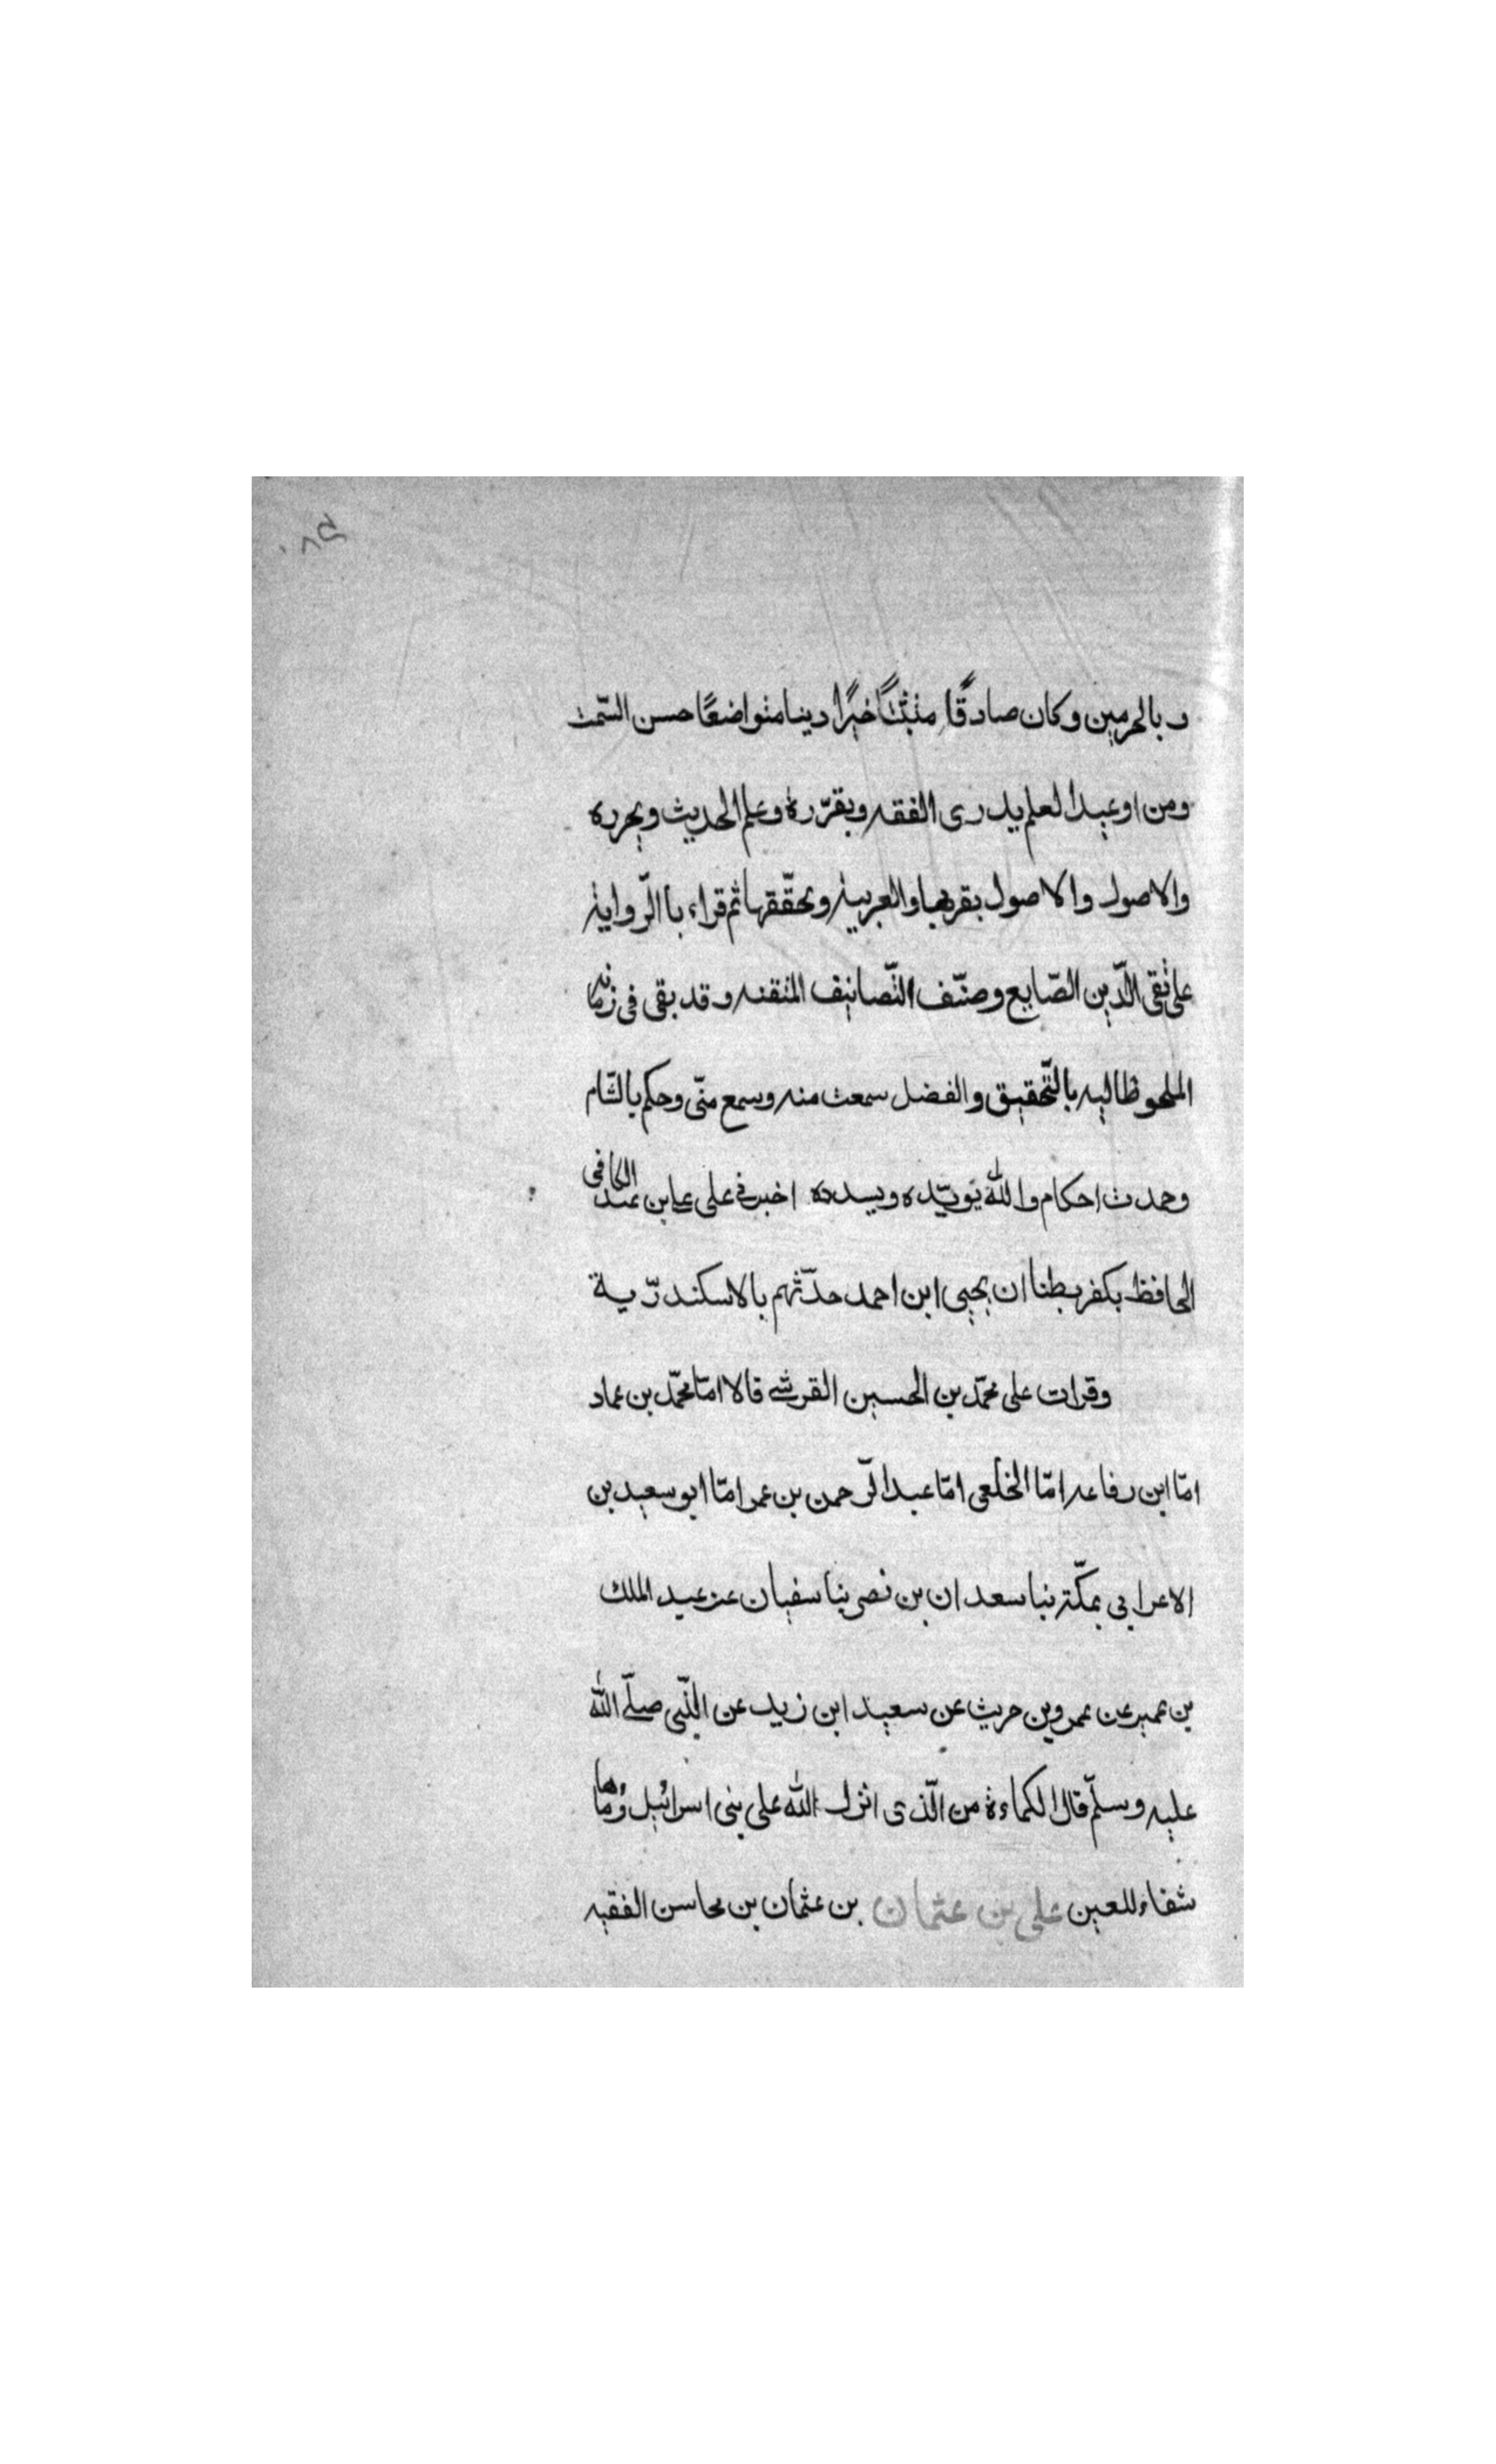 وبالحرمين وكان صادقًا متثبتًا خيرًا دينا متواضعًا حسن السّمت
ومن اوعيد العلم يدرى الفقه ويقرّره وعلم الحديث ويحرره
والاصول والاصول يقربها والعربية ويحقّقها ثم قراء باالرّواية
على تقى الدّين الصّايع وصنّف التّصانيف المتقنه وقد بقى فى زمانه
الملحوظ اليه بالتّحقيق والفضل سمعت منه وسمع منّى وحكم بالشّام
وحمدت احكام والله يويّده ويسدده اخبرنے على على ابن عبد الكافى
الحافظ بكفر بطنا ان يحيى ابن احمد حدّثهم بالاسكندرّية
وقرات على محمّد بن الحسين القرشے قالا امّا محمّد بن عماد
امّا ابن رفاعه امّا الخلعى امّا عبد الرّحمن بن عمر امّا ابو سعيد بن
الاعرابى بمكّة بنا سعدان بن نصر ينا سفيان عن عبد الملك
بن عمير عن عمرو بن حريث عن سعيد ابن زيد عن النّبى صلّے الله
عليه وسلّم قال الكماءة من الّذى انزل الله على بنى اسرائيل وُماها
شفاء للعين على بن عثمان بن عثمان بن محاسن الفقيه